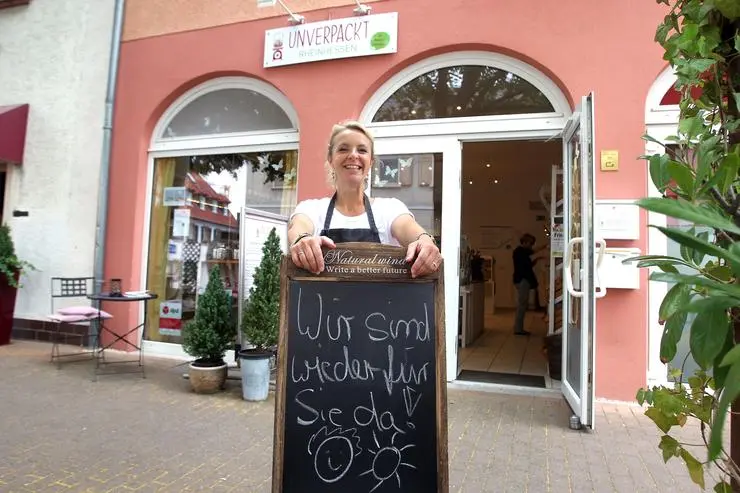 UNVERPACKT
RHEINHESSEN
Natural wind
Write a better future
Wir sind
wieder für
Sie da!
dpd